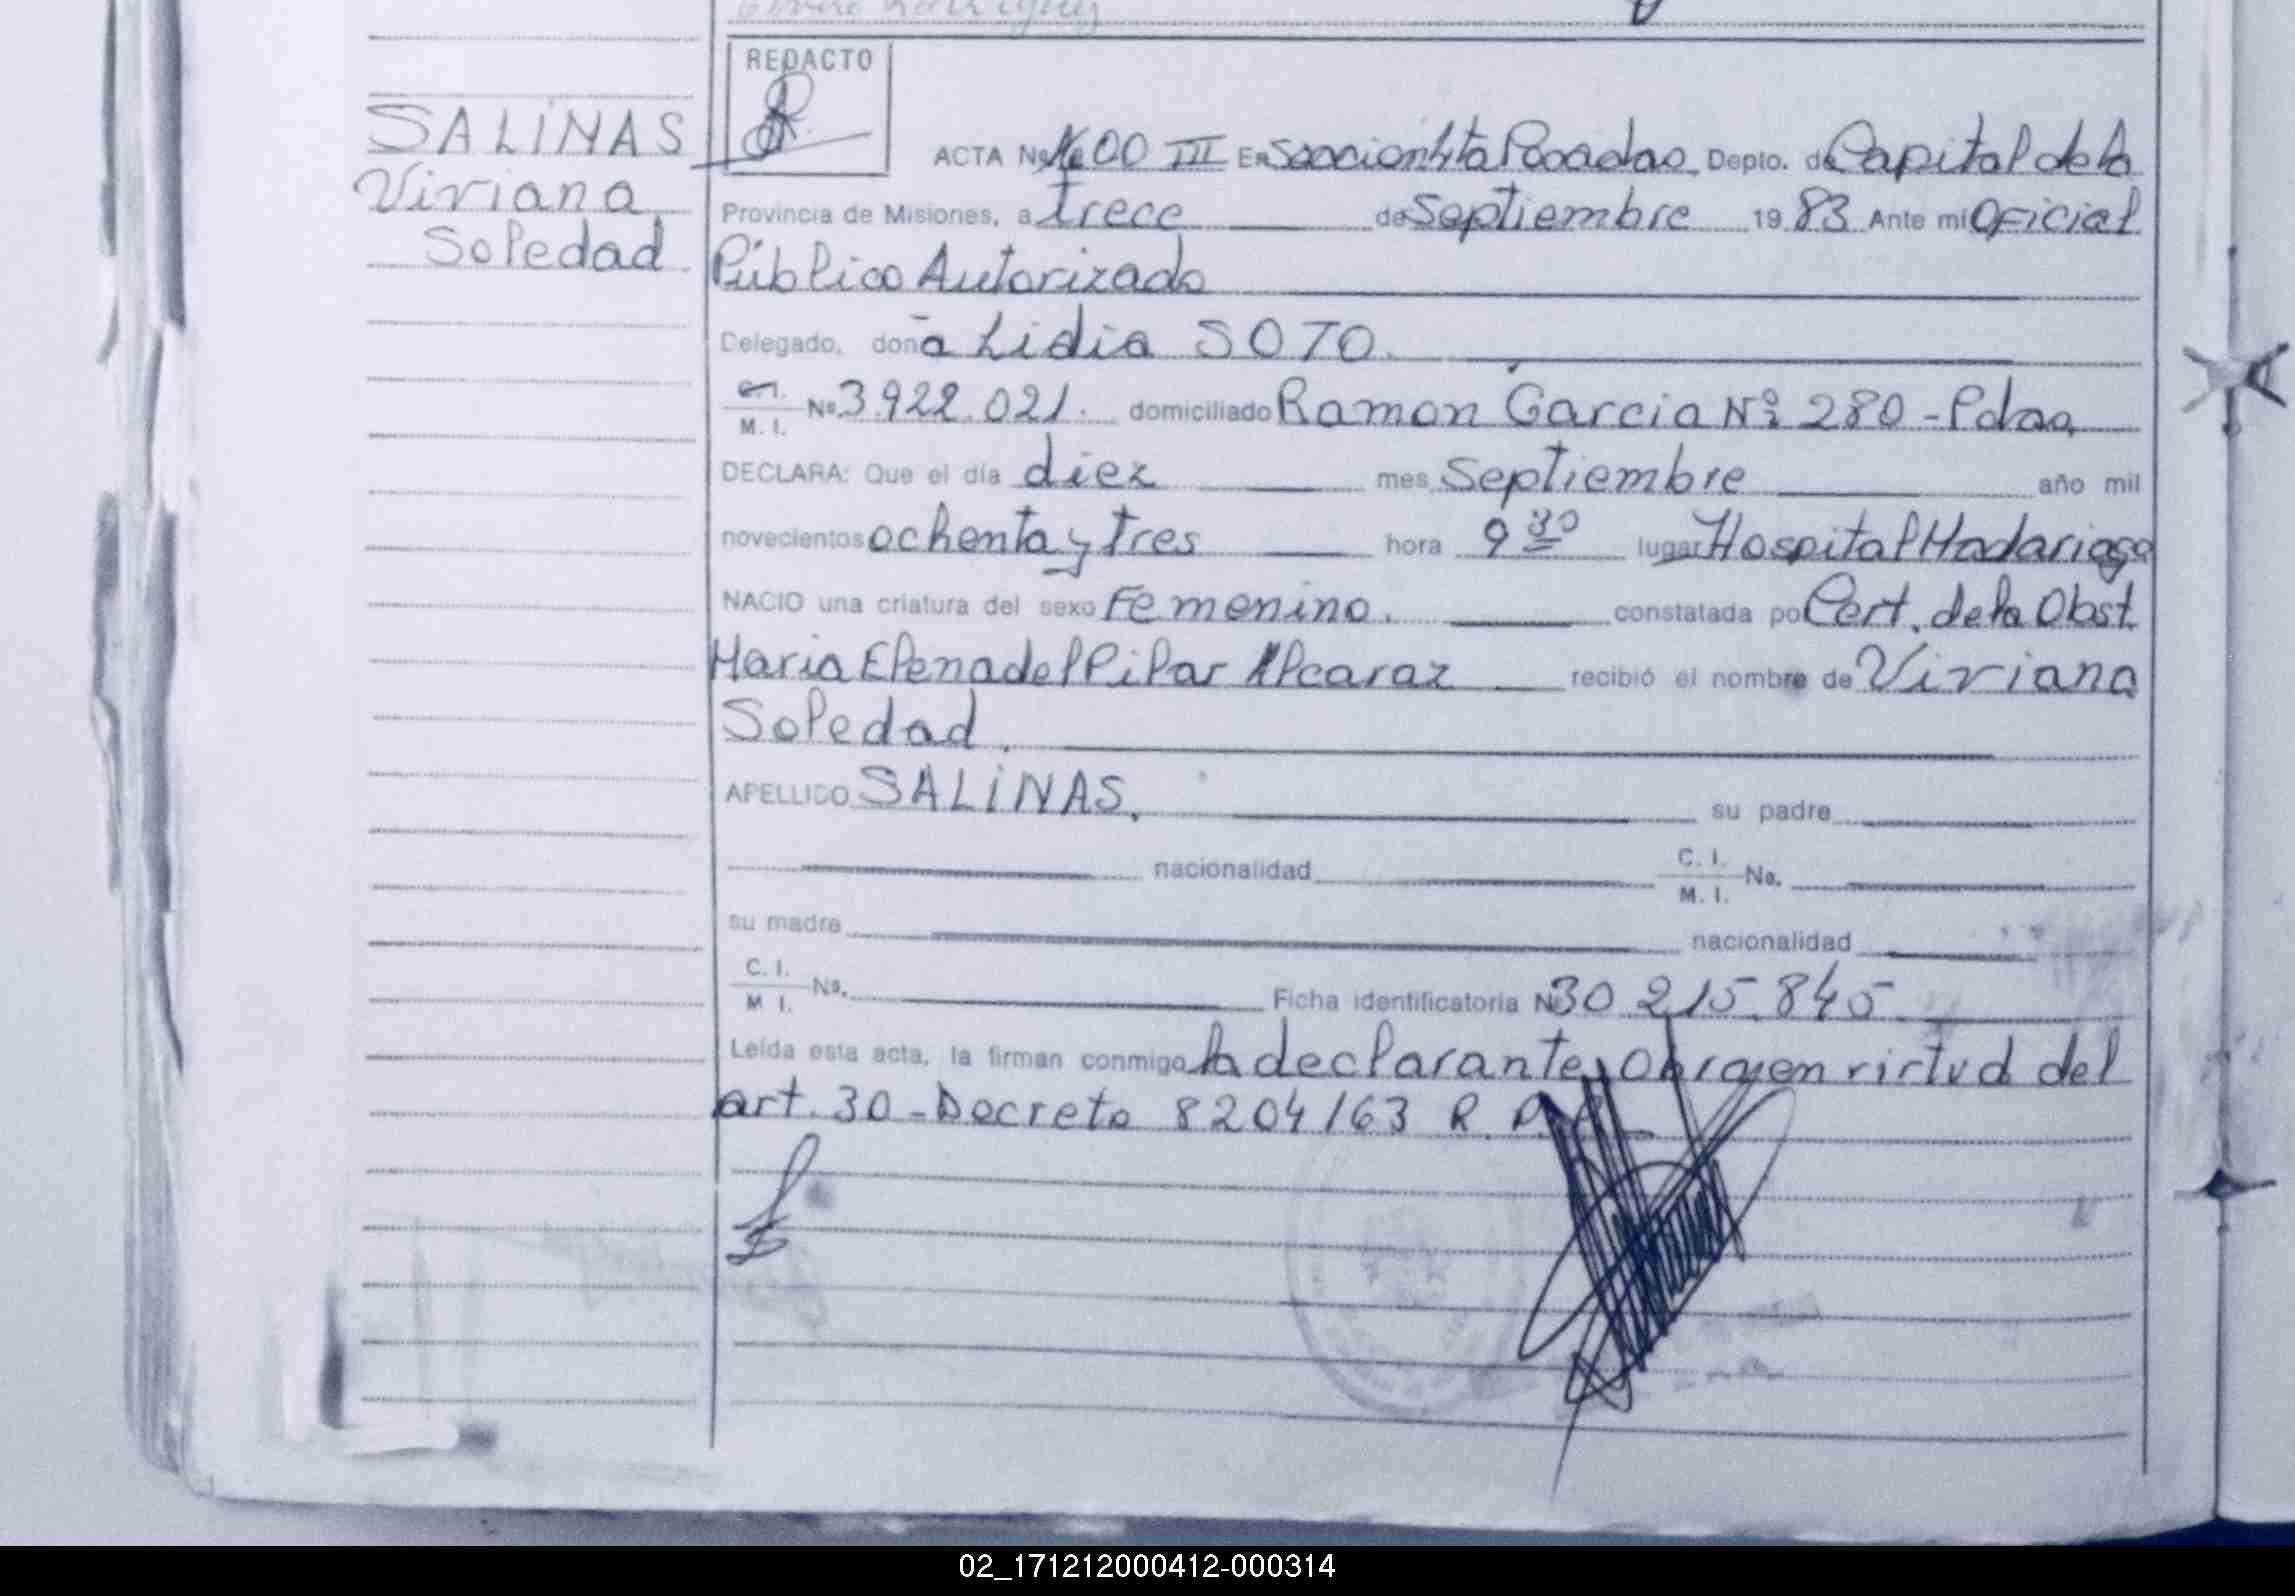 REDACTO
SALINAS
Viriana
Soledad.
ACTA No 1600 III En Sección 4ta Posadas, Depto. de Capital de la
Provincia de Misiones, a trece de Septiembre 1983 Ante mi Oficial
Público Autorizado
Delegado, doña Lidia SOTO.
C.I.
M. I. No. 3.922.021. domiciliado Ramon García Nº 280 - Pdas,
DECLARA: Que el día diez mes Septiembre año mil
novecientos ochenta y tres hora 9 30 lugar Hospital Madariaga
NACIO una criatura del sexo Femenino. constatada por Cert. de la Obst.
Maria Elena del Pilar Alcaraz recibió el nombre de Viriana
Soledad.
APELLIDO SALINAS. su padre
nacionalidad C. I. M. I. No.
su madre nacionalidad
C. I. M I. No. Ficha identificatoria Nº 30.215.845.
Leída esta acta, la firman conmigo la declarante, obra en virtud del
art. 30 - Decreto 8204/63 R.
02_171212000412-000314